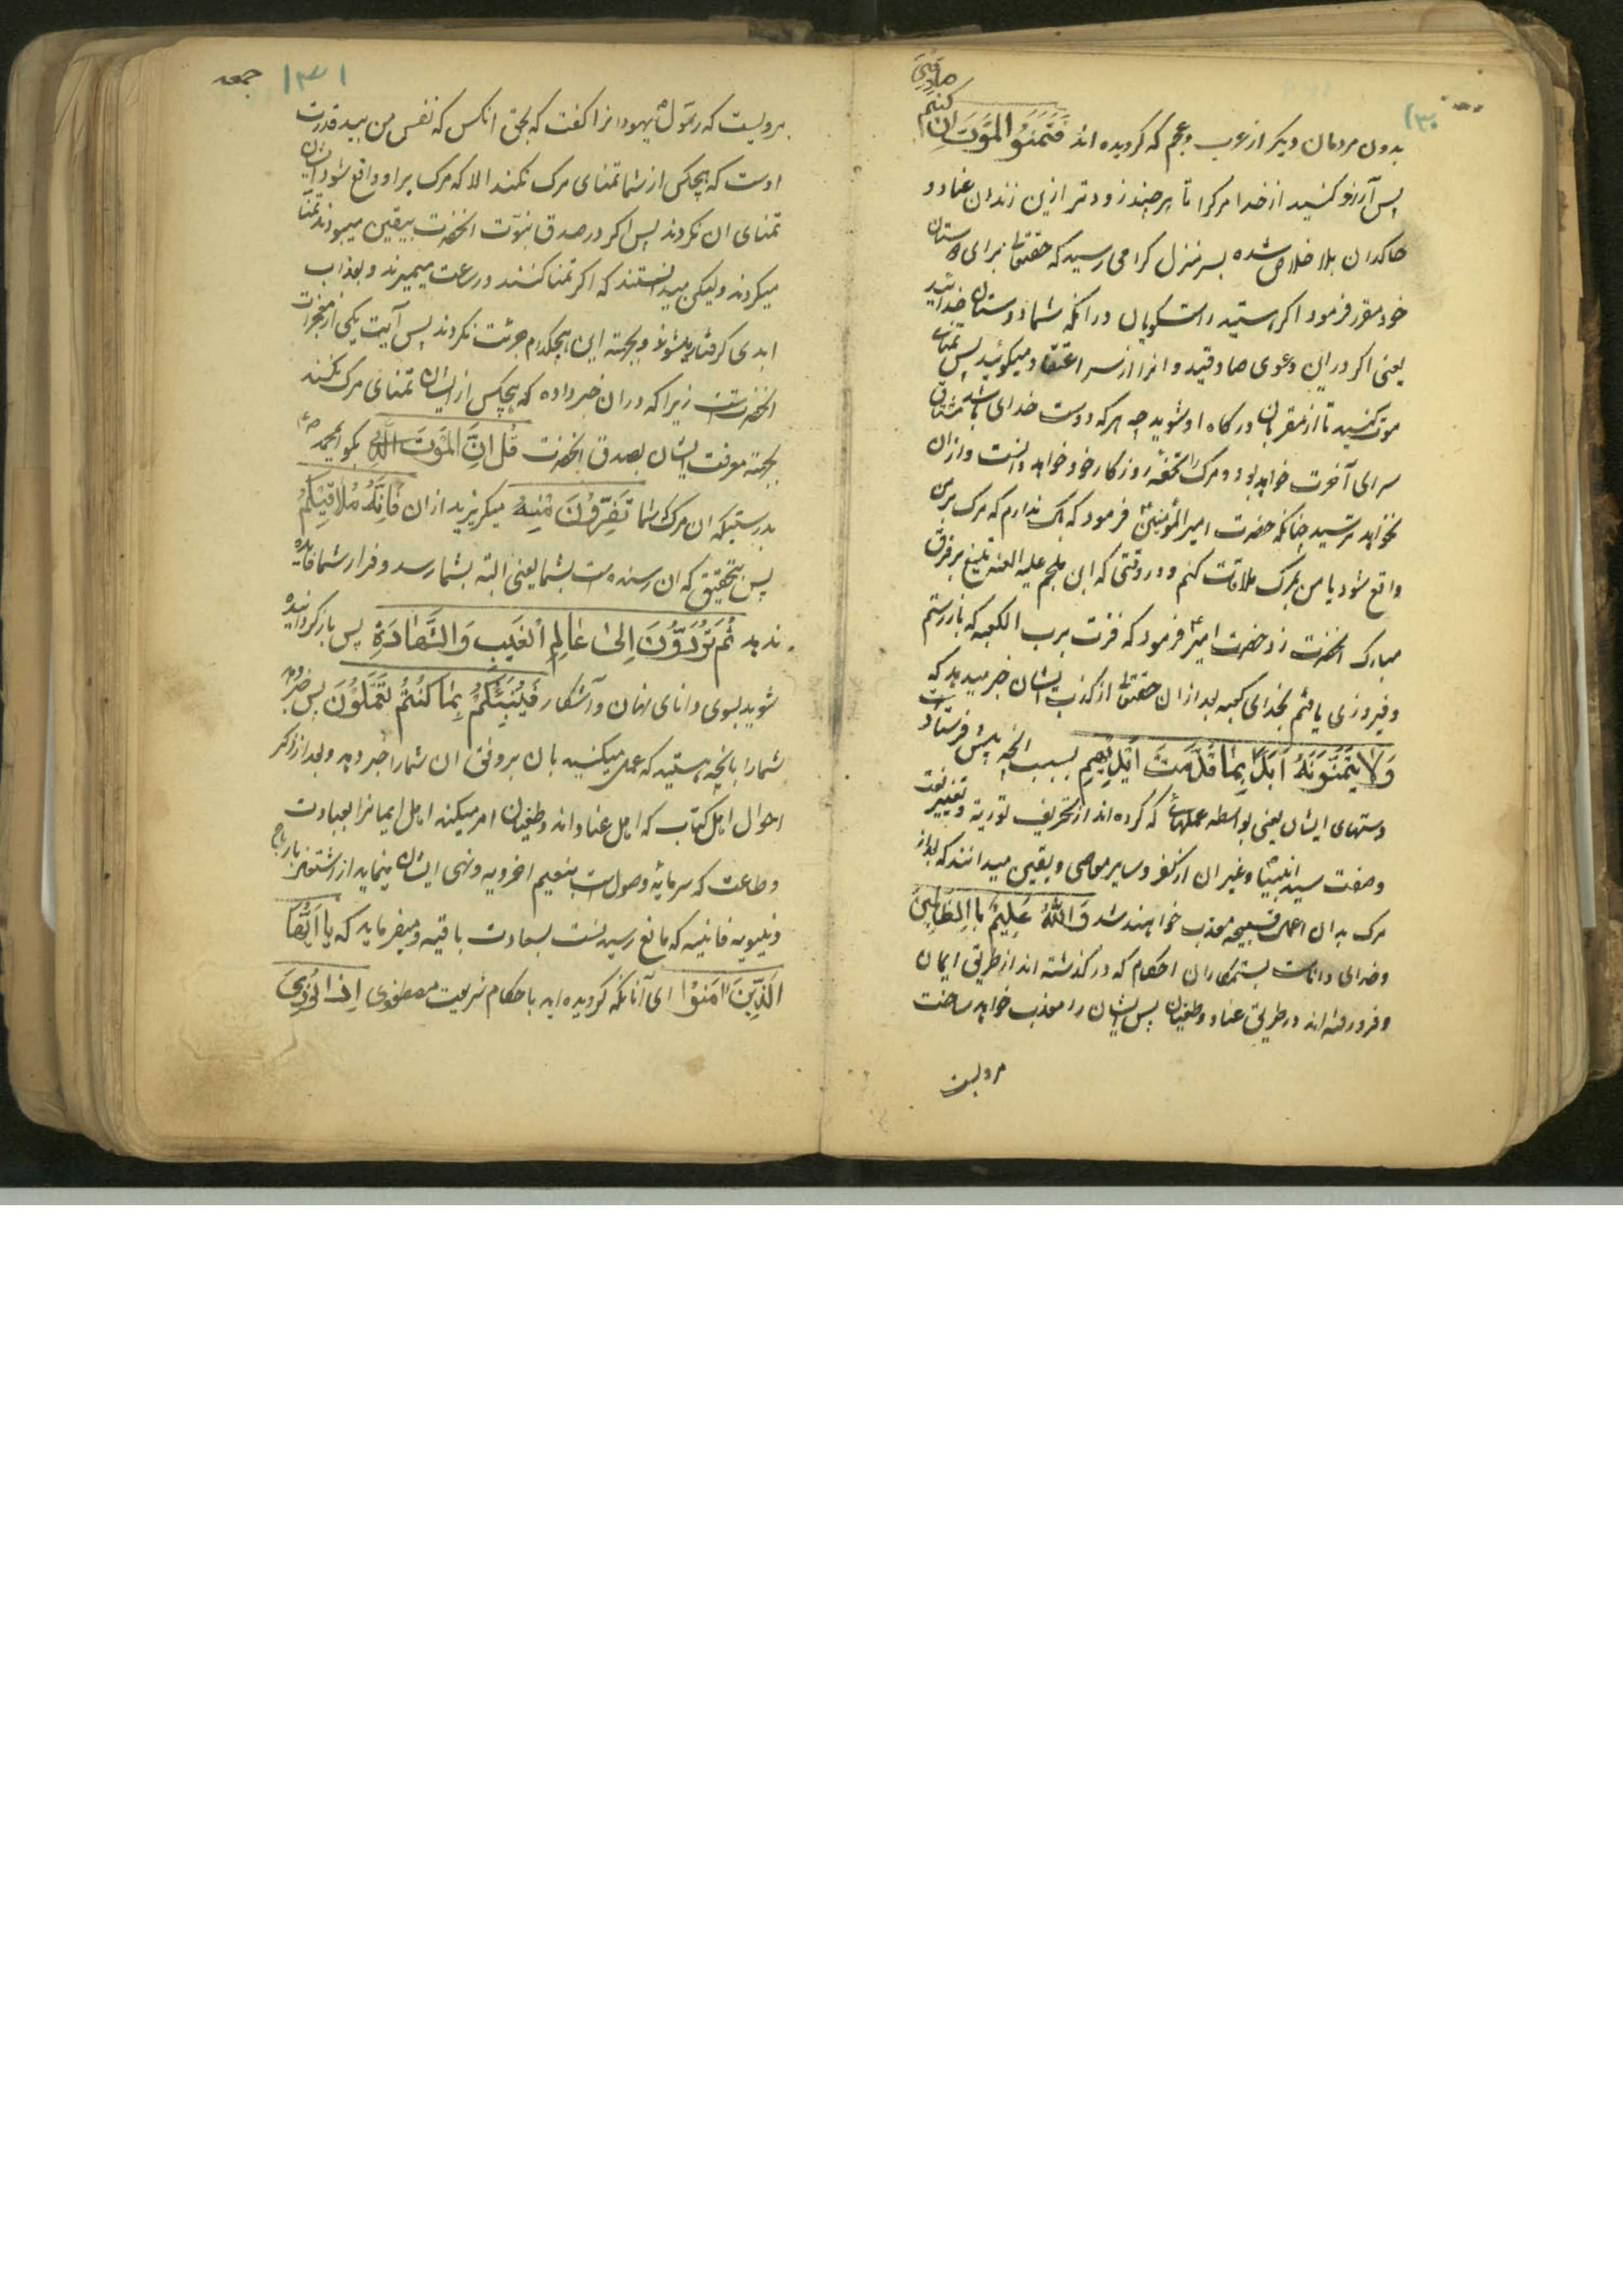 ۱۳۰
بدون مردمان دیکر از عرب و عجم که کرویده اند فَتَمَنَّوُ الْمَوْتَ اِن کنتم صادقین
پس آرزو کنید از خدا مرکرا تا هر چند زودتر ازین زندان عناد و
خاکدان بلا خلاص شده بسر منزل کرامی رسید که حقتعالی برای دوستان
خود مقرر فرمود اکر هستید راست کویان در انکه شما دوستان خدائید
یعنی اکر در این دعوی صادقید و انرا از سر اعتقاد میکوئید پس تمنای
موت کنید تا از مقربان درکاه او شوید چه هر که دوست خدای باشد مشتاق
سرای آخرت خواهد بود و مرک را تحفه روزکار خود خواهد دانست و از ان
نخواهد ترسید چنانکه حضرت امیر المؤمنین فرمود که باک ندارم که مرک بر من
واقع شود یا من بمرک ملاقات کنم و در وقتی که ابن ملجم علیه اللعنه تیغ بر فرق
مبارک انحضرت زد حضرت امیر فرمود که فزت برب الکعبه که باز رستم
و فیروزی یافتم بخدای کعبه بعد از ان حقتعالی از کذب ایشان خبر میدهد که
وَلَا یَتَمَنَّوْنَهُ اَبَدًا بِمَا قَدَّمَتْ اَیْدِیهِمْ بسبب انچه پیش فرستاد
دستهای ایشان یعنی بواسطه عملهائی که کرده اند از تحریف توریة و تغییر نعت
و صفت سید انبیا و غیر ان از کفر و سایر معاصی و یقین میدانند که بعد از
مرک بدان اعمال قبیحه معذب خواهند شد وَاللّٰهُ عَلِیمٌ بِاالظّالِمِینَ
و خدای داناست بستمکاران احکام که در کذشته اند از طریق ایمان
و فرو رفته اند در طریق عناد و طغیان پس ایشان را معذب خواهد ساخت
مرویست
۱۳۱ جمعه
مرویست که رسول یهودانرا کفت که بحق انکس که نفس من بید قدرت
اوست که هیچکس از شما تمنای مرک نکند الا که مرک بر او واقع شود ایشان
تمنای ان نکردند پس اکر در صدق نبوّت انحضرت بیقین نمیبودند تمنا
میکردند ولیکن میدانستند که اکر تمنا کنند در ساعت میمیرند و بعذاب
ابدی کرفتار میشوند و بجهته این هیچکدام جرئت نکردند پس آیت یکی از معجزات
انحضرتست زیرا که در ان خبر داده که هیچکس از ایشان تمنای مرک نکند
بجهته معرفت ایشان بصدق انحضرت قُل اِنَّ الْمَوْتَ الَّذِی بکو ایمحمد
بدرستیکه ان مرک شما تَفِرُّوْنَ مِنْهُ میکریزید از ان فَاِنَّهُ مُلَاقِیْکُمْ
پس بتحقیق که ان رسنده است بشما یعنی البته بشما رسد و فرار شما فایده
ندهد ثُمَّ تُرَدُّوْنَ اِلیٰ عَالِمِ الْغَیْبِ وَالشَّهَادَةِ پس باز کردانیده
شوید بسوی دانای نهان و آشکار فَیُنَبِّئُکُمْ بِمَا کُنْتُمْ تَعْمَلُوْنَ پس خبر دهد
شما را بانچه هستید که عمل میکنید بان بر وفق ان شما را خبر دهد و بعد از ذکر
احوال اهل کتاب که اهل عناد اند و طغیان امر میکند اهل ایمانرا بعبادت
و طاعت که سرمایهٔ وصول است بنعیم اخرویه و نهی ایشان مینماید از اشتغال
دنیویه فانیه که مانع رسیدنست بسعادت باقیه و میفرماید که یَا اَیُّهَا
الَّذِیْنَ اٰمَنُوْا ای آنانکه کرویده اید باحکام شریعت مصطفوی اِذَا نُودِیَ